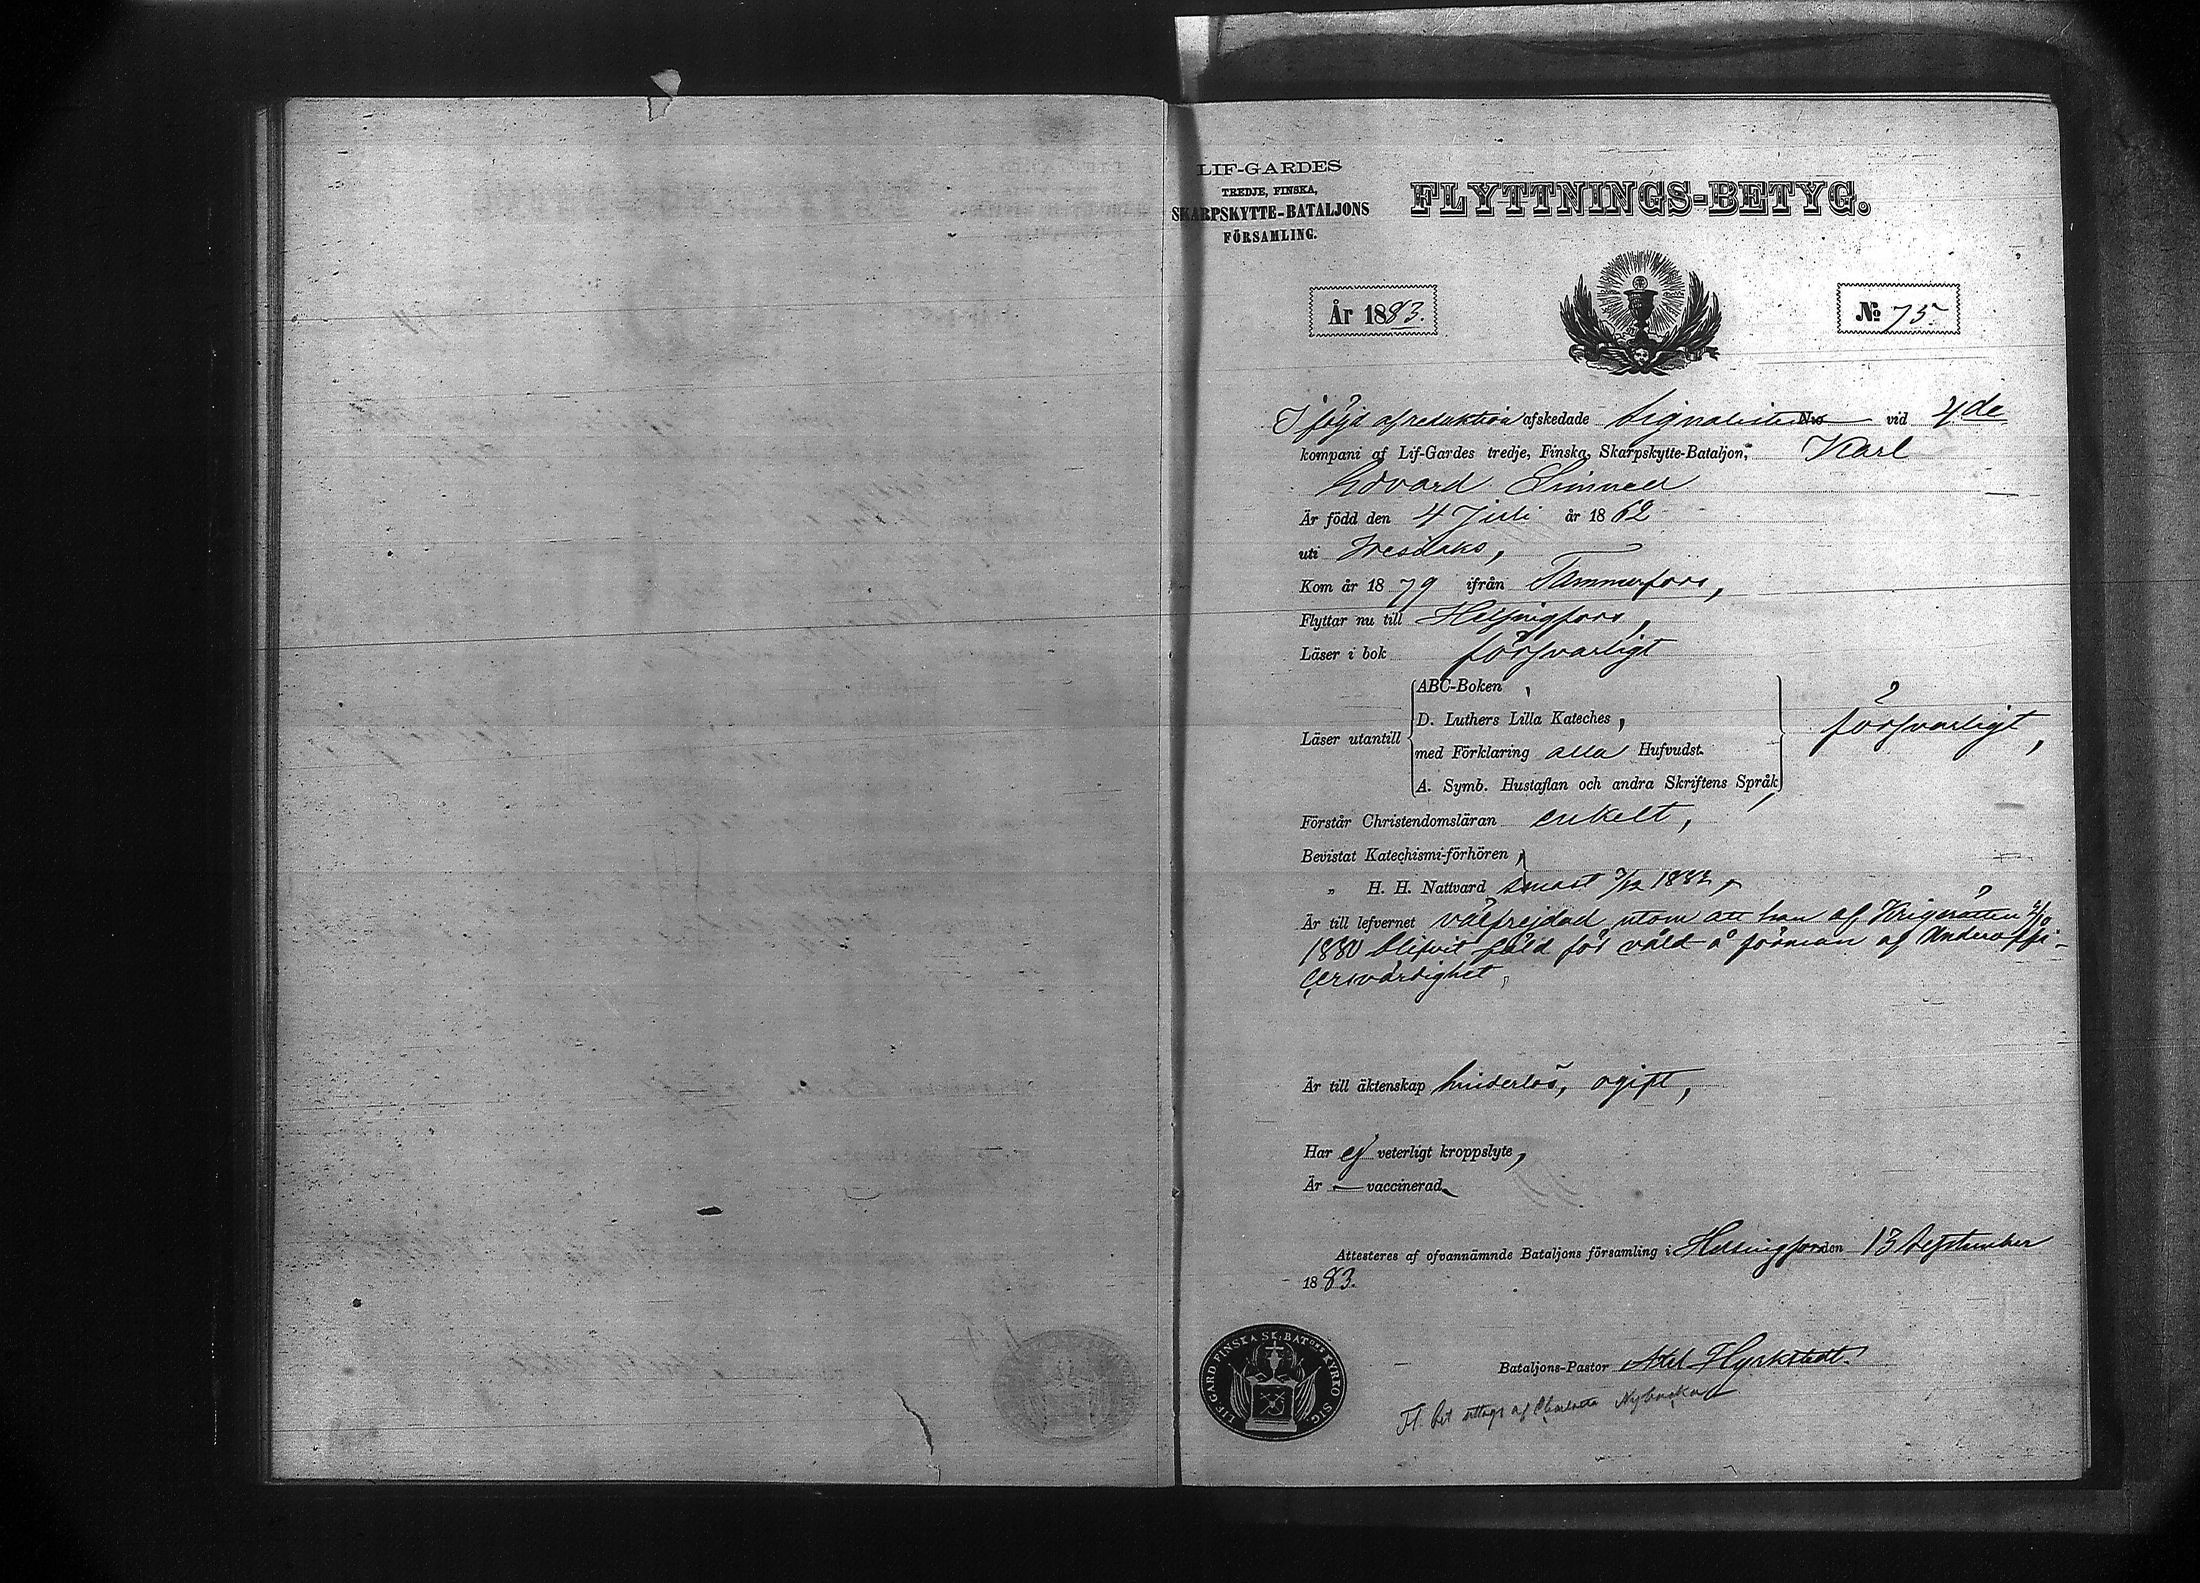 LIF-GARDES
TREDJE, FINSKA,
SKARPSKYTTE-BATALJONS
FÖRSAMLING.
FLYTTNINGS-BETYG.
År 1883.
№ 75
I följd af reduktion afskedade Signalisten No vid 4de
kompani af Lif-Gardes tredje, Finska, Skarpskytte-Bataljon, Karl
Edvard
Är född den 4 Juli år 1862
uti
Kom år 1879 ifrån Tammerfors,
Flyttar nu till Helsingfors,
Läser i bok försvarligt
Läser utantill
ABC-Boken,
D. Luthers Lilla Kateches,
med Förklaring alla Hufvudst.
A. Symb. Hustaflan och andra Skriftens Språk
försvarligt,
Förstår Christendomsläran enkelt,
Bevistat Katechismi-förhören,
„ H. H. Nattvard senast 3/12 1882,
Är till lefvernet välfrejdad utom att han af Krigsrätten
1880 blifvit fäld för våld å förman af Underoffi-
cersvärdighet,
Är till äktenskap hinderlös, ogift,
Har ej veterligt kroppslyte,
Är — vaccinerad
Attesteres af ofvannämnde Bataljons församling i Helsingfors den 13 September
1883.
LIF-GARD FINSKA SK: BATONS KYRKO SIG.
Bataljons-Pastor Axel Hyrkstedt.
Fl. bet uttagt af Charlotta